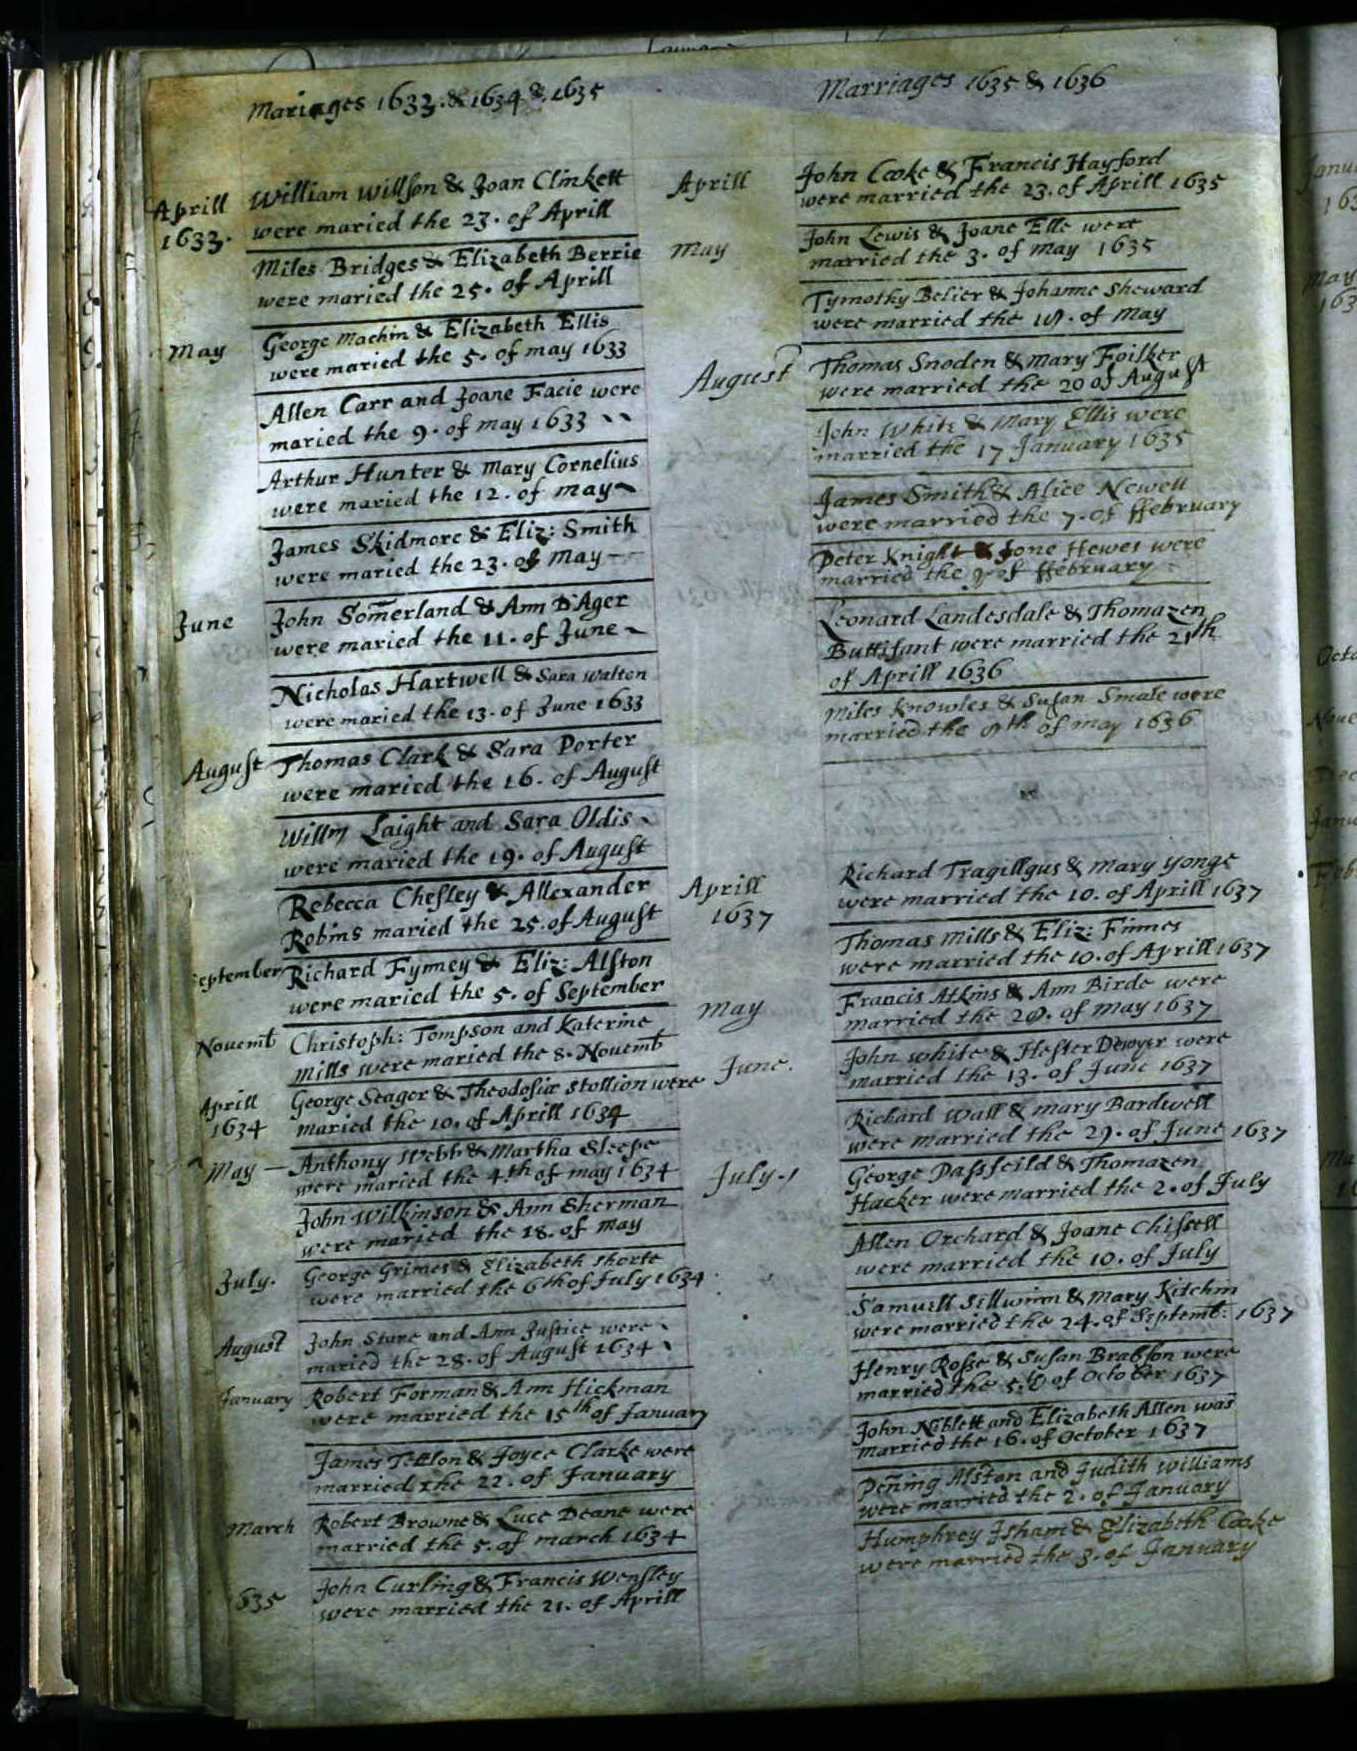 Mariages 1633. & 1634 & 1635
Aprill
1633.
William Willson & Joan Clinkett
were maried the 23. of Aprill
Miles Bridges & Elizabeth Berrie
were maried the 25. of Aprill
May
George Machin & Elizabeth Ellis
were maried the 5. of may 1633
Allen Carr and Joane Facie were
maried the 9. of may 1633
Arthur Hunter & Mary Cornelius
were maried the 12. of may
James Skidmore & Eliz: Smith
were maried the 23. of May
June
John Somerland & Ann D'Ager
were maried the 11. of June
Nicholas Hartwell & Sara Walton
were maried the 13. of June 1633
August
Thomas Clark & Sara Porter
were maried the 16. of August
Willm Laight and Sara Oldis
were maried the 19. of August
Rebecca Chesley & Allexander
Robins maried the 25. of August
September
Richard Fynney & Eliz: Alston
were maried the 5. of September
Novemb
Christoph: Tompson and Katerine
Mills were maried the 8. Novemb
Aprill
1634
George Seager & Theodosia Stollion were
maried the 10. of Aprill 1634
May
Anthony Webb & Martha Sleepe
were maried the 4th of may 1634
John Wilkinson & Ann Sherman
were maried the 18. of may
July.
George Grimes & Elizabeth Shorte
were married the 6th of July 1634
August
John Sture and Ann Justice were
maried the 28. of August 1634
January
Robert Forman & Ann Hickman
were married the 15th of January
James Tetlon & Joyce Clarke were
married the 22. of January
March
Robert Browne & Luce Deane were
married the 5. of march 1634
635
John Curling & Francis Wensley
were married the 21. of Aprill
Marriages 1635 & 1636
Aprill
John Cooke & Francis Hayford
were married the 23. of Aprill 1635
May
John Lewis & Joane Elle were
married the 3. of may 1635
Tymothy Belier & Johanne Sheward
were married the of May
August
Thomas Snoden & Mary Foilker
were married the 20 of August
John White & Mary Ellis were
married the 17 January 1635
James Smith & Alice Newell
were married the 7. of ffebruary
Peter Knight & Jone Hewes were
married the of ffebruary
Leonard Landesdale & Thomazen
Buttifant were married the 21th
of Aprill 1636
Miles Knowles & Susan Smale were
married the th of may 1636
Aprill
1637
Richard Tragillgus & Mary Yonge
were married the 10. of Aprill 1637
Thomas Mills & Eliz: Finnes
were married the 10. of Aprill 1637
May
Francis Atkins & Ann Birde were
married the of may 1637
June.
John White & Hester Dewyer were
married the 13. of June 1637
Richard Wall & Mary Bardwell
were married the 29. of June 1637
July.
George Passfeild & Thomazen
Hacker were married the 2. of July
Allen Orchard & Joane Chissell
were married the 10. of July
Samuell Sillwinn & Mary Kitchin
were married the 24. of Septemb: 1637
Henry Rosse & Susan Brabson were
married the 5. of October 1637
John Noblett and Elizabeth Allen was
married the 16. of October 1637
Pening Alston and Judith Williams
were married the 2. of January
Humphrey Isham & Elizabeth Cooke
were married the 3. of January